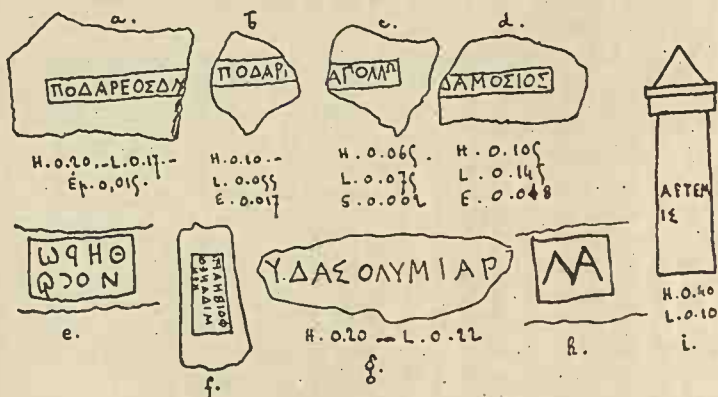 a.
ΠΟΔΑΡΕΟΣΔΑ
H. 0.20 _ L. 0.17. _
Ép. 0,015.
b
ΠΟΔΑΡΙ
H. 0.10 _
L. 0.055
E. 0.017
c.
ΑΠΟΛΛΩ
H. 0.065.
L. 0.075
S. 0.002
d.
ΔΑΜΟΣΙΟΣ
H. 0.105
L. 0.145
E. 0.048
e.
f.
Υ.ΔΑΣΟΛΥΜΙΑΡ
H. 0.20 _ L. 0.22
g.
h.
ΑΡΤΕΜ
ΙΣ
H. 0.40
L. 0.10
i.